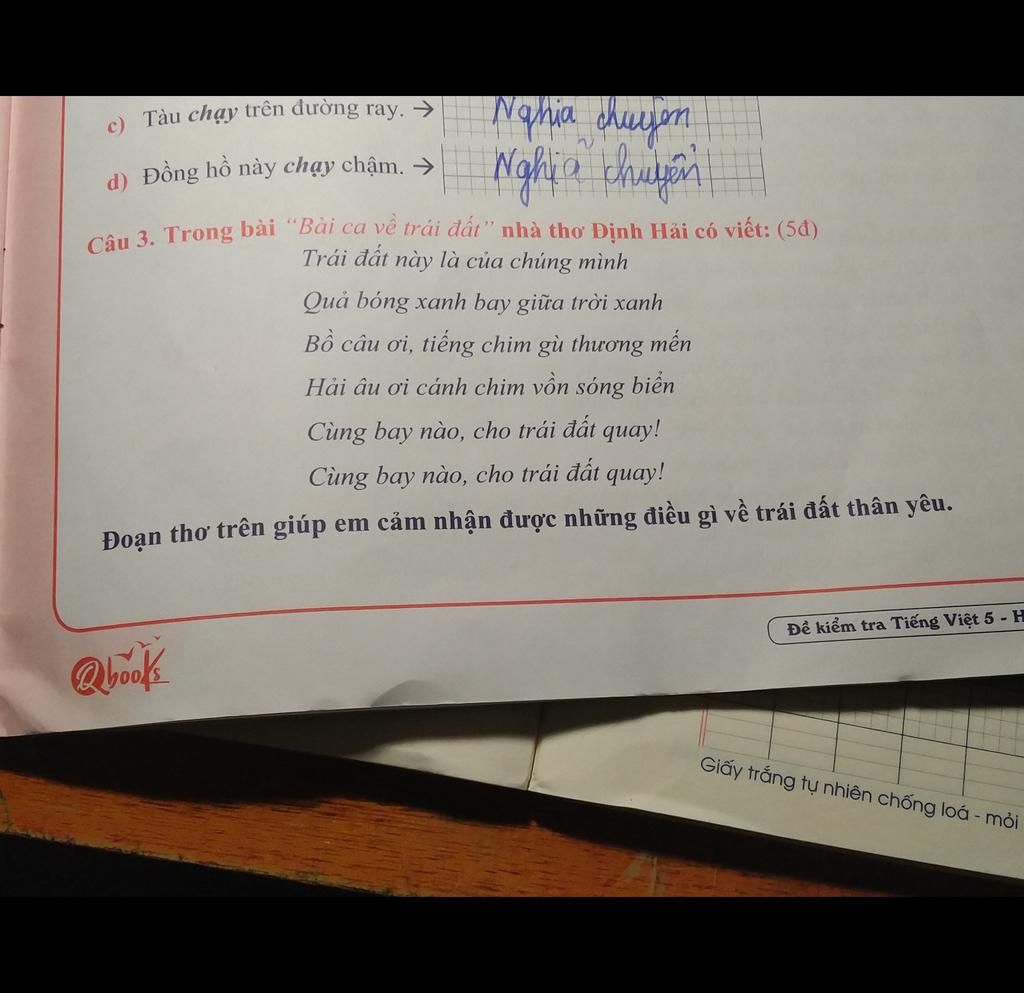 c) Tàu chạy trên đường ray. → Nghĩa chuyển
d) Đồng hồ này chạy chậm. → Nghĩa chuyển
Câu 3. Trong bài “Bài ca về trái đất” nhà thơ Định Hải có viết: (5đ)
Trái đất này là của chúng mình
Quả bóng xanh bay giữa trời xanh
Bồ câu ơi, tiếng chim gù thương mến
Hải âu ơi cánh chim vồn sóng biển
Cùng bay nào, cho trái đất quay!
Cùng bay nào, cho trái đất quay!
Đoạn thơ trên giúp em cảm nhận được những điều gì về trái đất thân yêu.
Đề kiểm tra Tiếng Việt 5 - H
Qbooks
Giấy trắng tự nhiên chống loá - mỏi